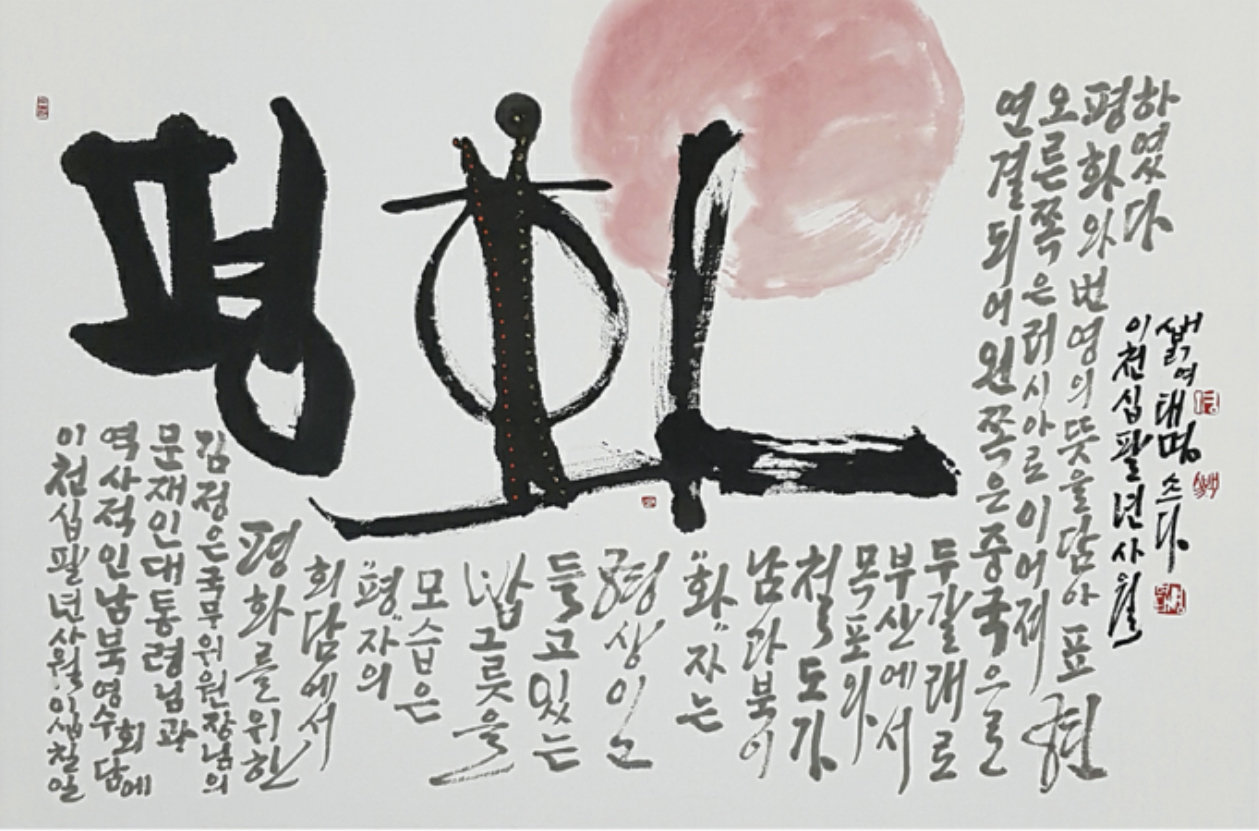 평화
이천십팔년사월이십칠일
역사적인남북영수회담에
문재인대통령님과
김정은국무위원장님의
평화를위한
회담에서
"평"자의
모습은
밥그릇을
들고있는
형상이고
"화"자는
남과북이
철도가
목포와
부산에서
두갈래로
연결되어왼쪽은중국으로
오른쪽은러시아로이어져
평화와번영의뜻을담아표현
하였다
이천십팔년사월
여태명쓰다